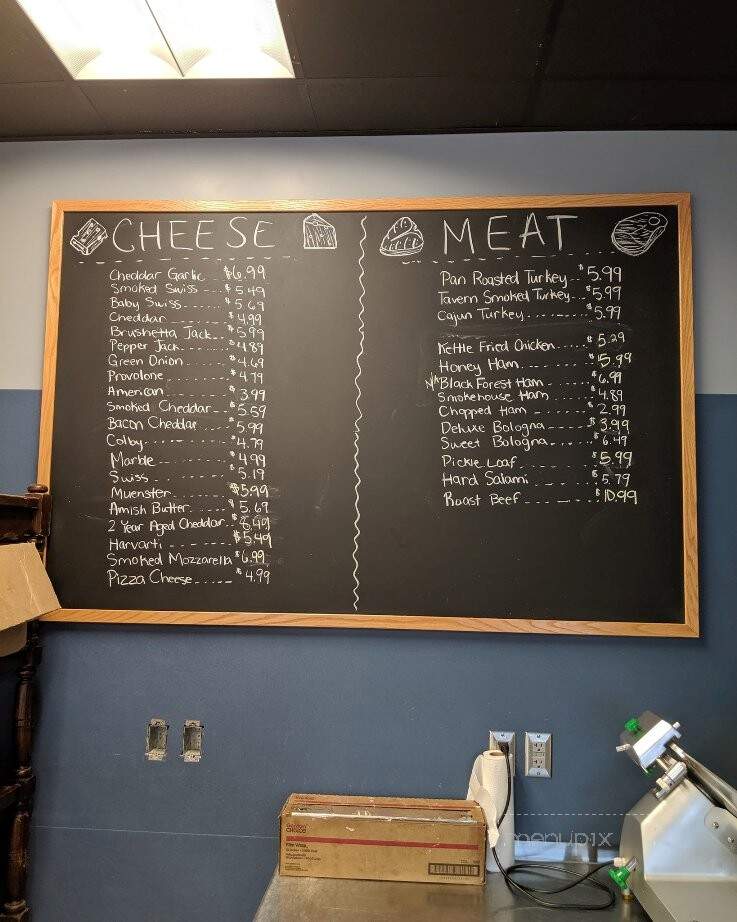 CHEESE
Cheddar Garlic $6.99
Smoked Swiss --- $5.49
Baby Swiss ---- $5.69
Cheddar ------ $4.99
Brushetta Jack-- $5.99
Pepper Jack--- $4.89
Green Onion ---- $4.69
Provolone ------ $4.79
American ------ $3.99
Smoked Cheddar-- $5.59
Bacon Cheddar --- $5.99
Colby------- $4.79
Marble------ $4.99
Swiss ------ $5.19
Muenster------ $5.99
Amish Butter---- $5.69
2 Year Aged Cheddar-- $8.99
Harvarti ------ $5.49
Smoked Mozzarella $6.99
Pizza Cheese----- $4.99
MEAT
Pan Roasted Turkey-- $5.99
Tavern Smoked Turkey-- $5.99
Cajun Turkey ------- $5.99
Kettle Fried Chicken---- $5.29
Honey Ham------- $5.99
N/A Black Forest Ham ---- $6.99
Smokehouse Ham $4.89
Chopped Ham ----- $2.99
Deluxe Bologna---- $3.99
Sweet Bologna------ $6.49
Pickle Loaf------- $5.99
Hard Salami ------ $5.79
Roast Beef ------- $10.99
CHOICE
menupix